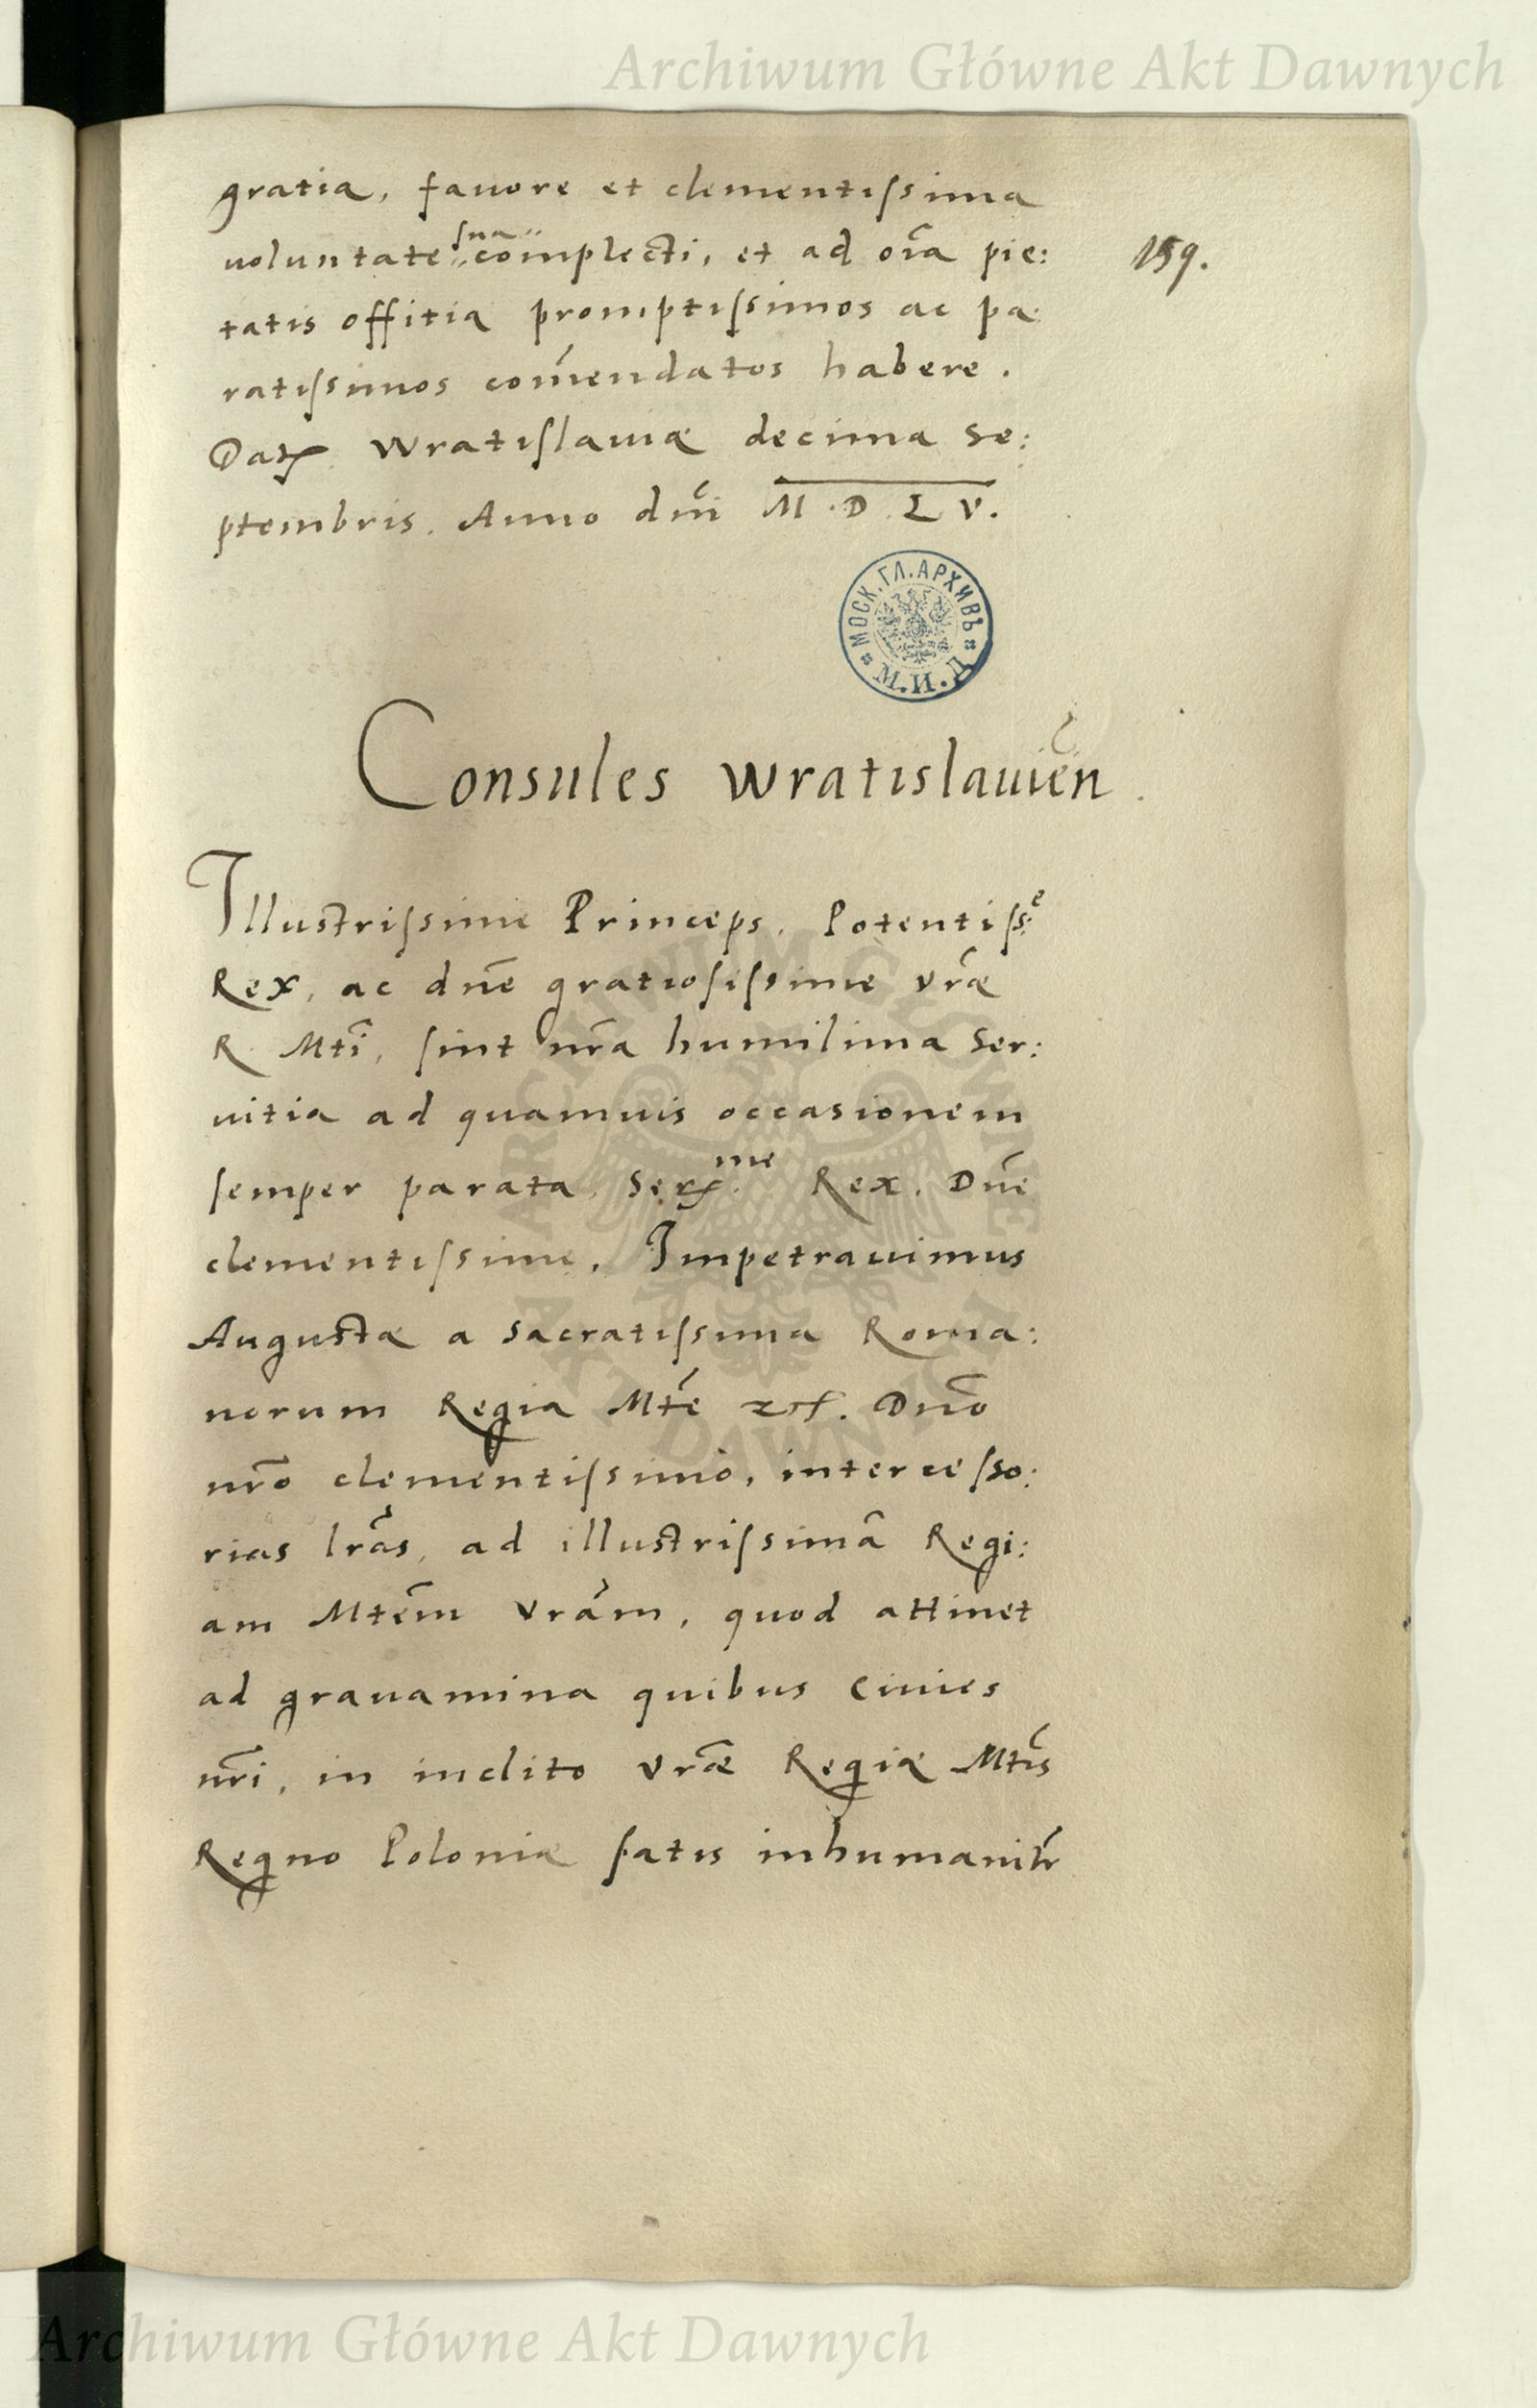 Archiwum Główne Akt Dawnych
gratia, fauore et clementiſsima
uoluntate ſua complecti, et ad oīa pie:
159.
tatis offitia promptiſsimos ac pa
ratiſsimos com̄endatos habere.
Datꝝ Wratiſlauiæ decima se:
ptembris. Anno dm̄i M.D.L V.
МОСК.ГЛ.АРХИВЪ
М.И.Д
Consules Wratislauien̄
Illustriſsime Princeps. Potentiſs:e
Rex, ac dn̄e gratioſiſsime vr̄æ
R Mti̅, ſint nr̄a humilima ser:
uitia ad quamuis occasionem
ſemper parata. Serꝝ.me Rex. Dn̄e
clementiſsime. Impetrauimus
Augustæ a sacratiſsima Roma:
norum Regia Mtē Dn̄o
nr̄o clementiſsimo, interceſso:
rias lr̄as, ad illustriſsimā Regi:
am Mtēm vrām, quod attinet
ad grauamina quibus Ciuies
nr̄i, in inclito vr̄æ Regiæ Mtis̄
Regno Poloniæ ſatis inhumanitr̄
ARCHIWUM GŁÓWNE
AKT DAWNYCH
Archiwum Główne Akt Dawnych